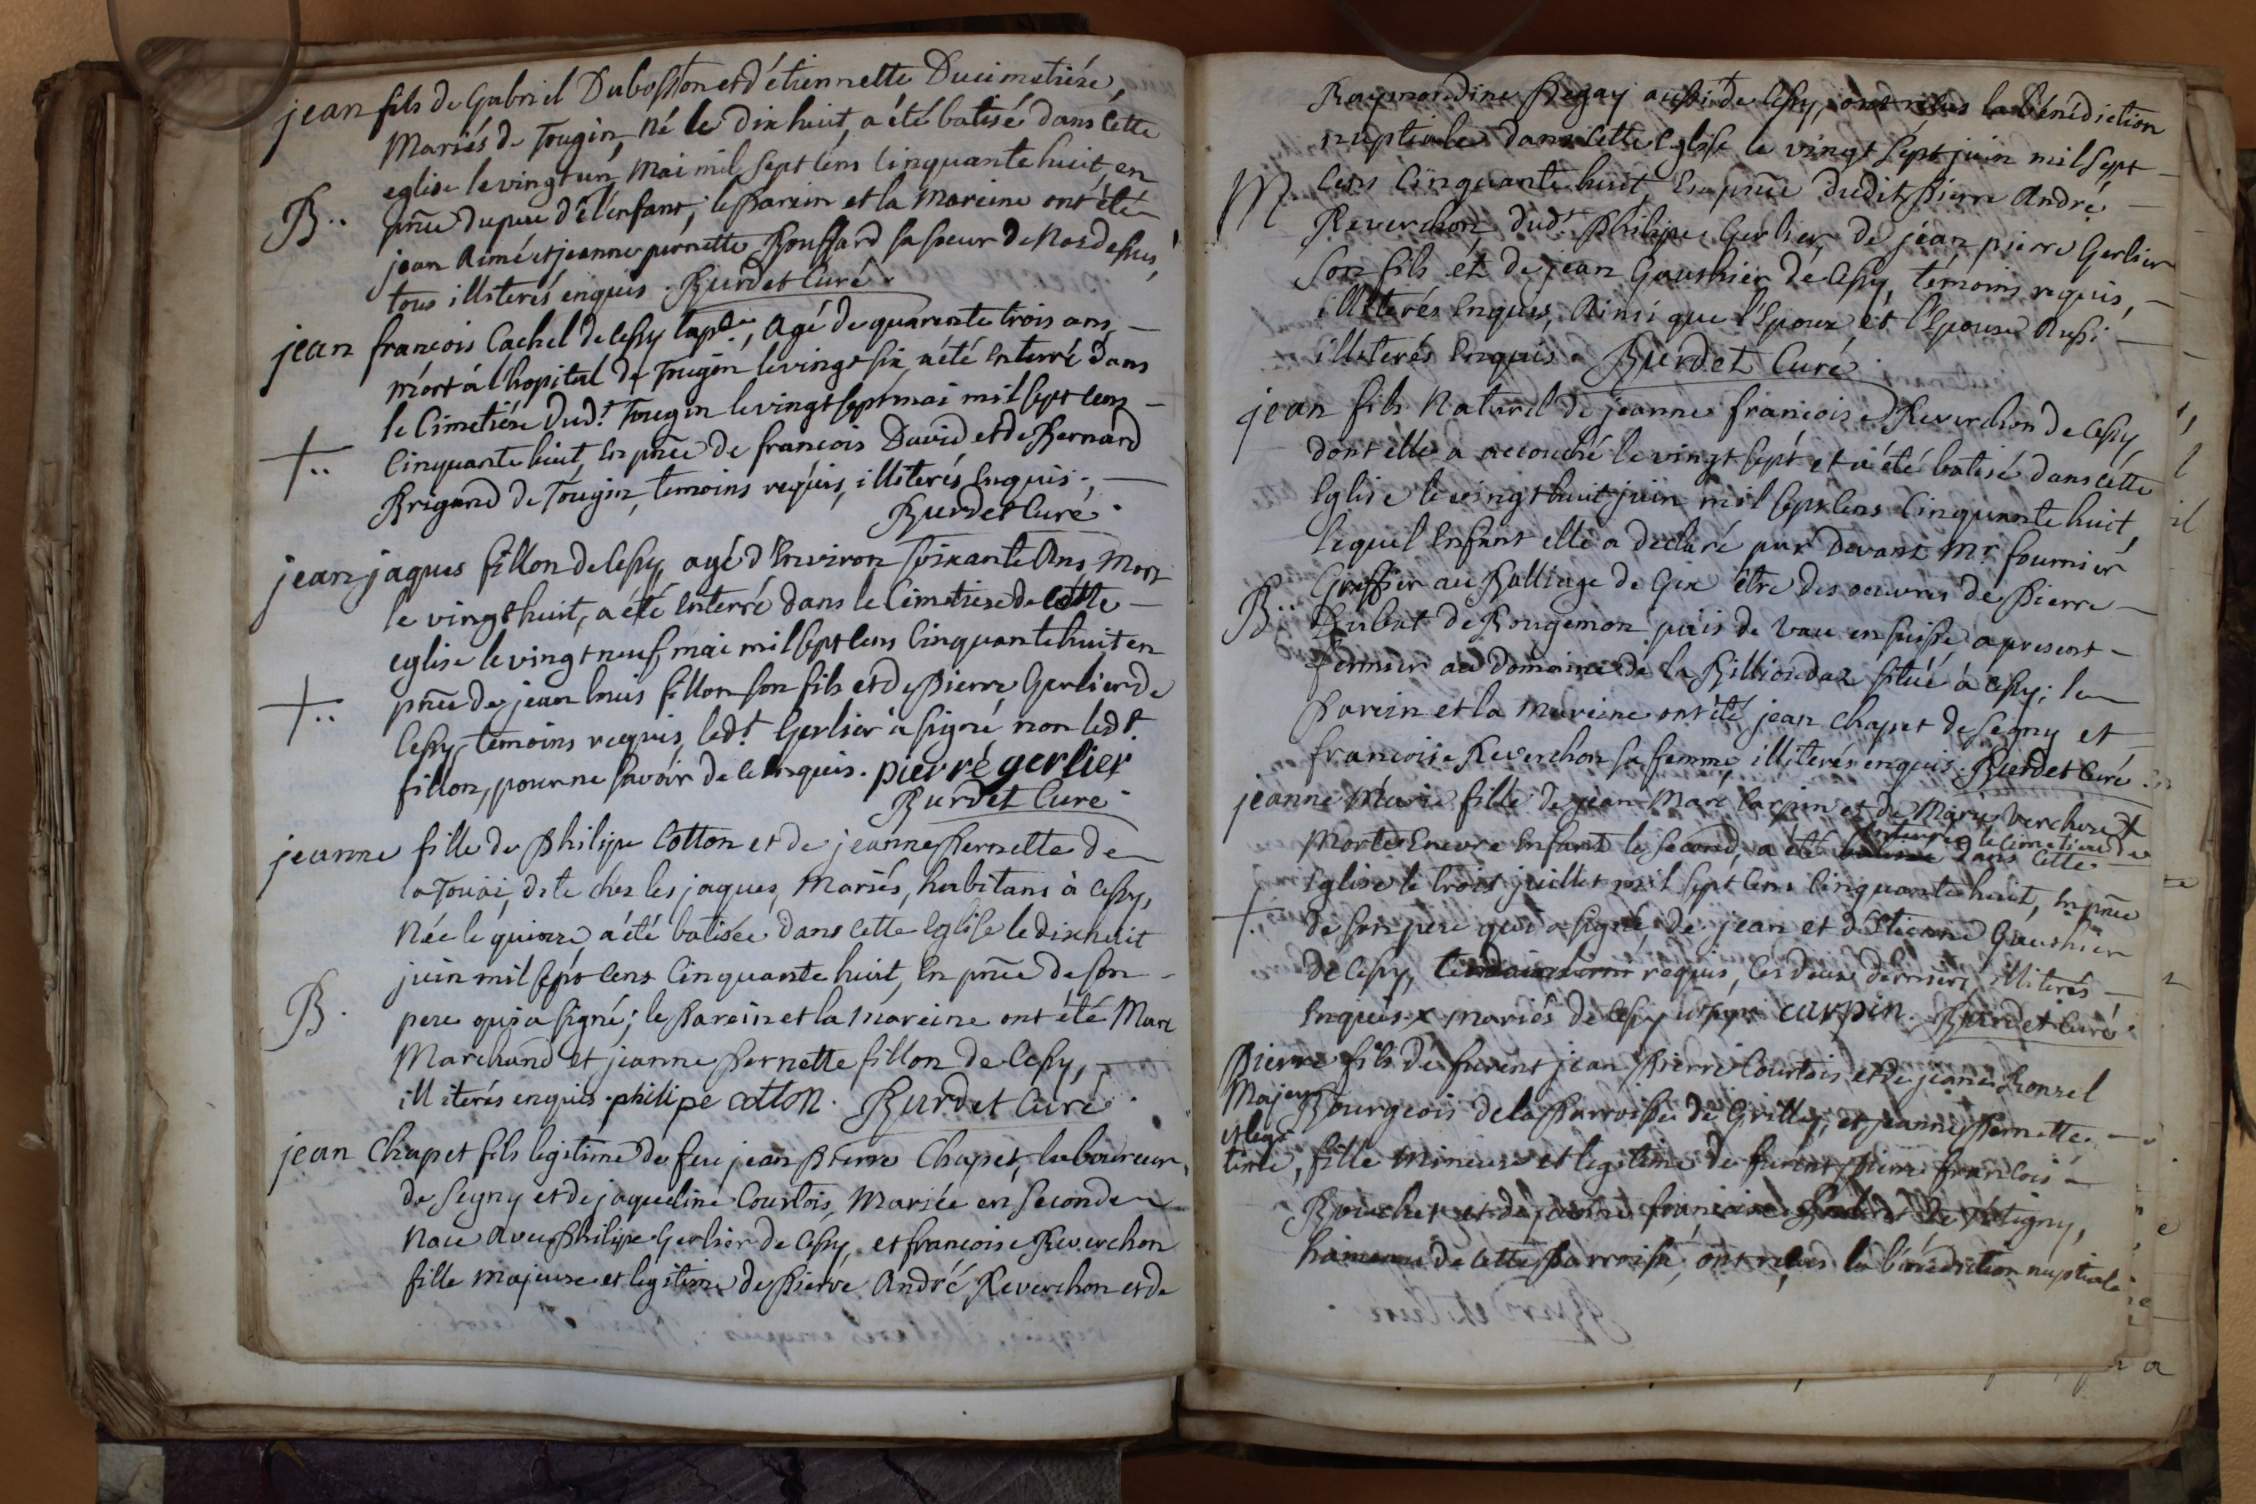 jean fils de Gabriel Dubosson et d'étiennette Ducimetiére,
Mariés de Tougin, né le dix huit, a été batisé dans cette
eglise le vingt un mai mil sept cens cinquante huit, en
B.. pñce du pere de l'enfant; le Parein et la Mareine ont été
jean Aimé et jeanne pernette Bouffard sa soeur de
tous illiterés enquis. Burdet Curé.
jean francois Cachet de Cessy, agé de quarente trois ans,
mort à l'hopital de Tougin le vingt six, a été enterré dans
le Cimetiére dud.t Tougin le vingt sept mai mil sept cens
+.. cinquante huit, en pñce de francois David et de Bernard
Brigand de Tougin, temoins requis, illiterés enquis.,
Burdet Curé.
jean jaques fillon de Cessy, agé d'environ soixante Ans, Mort
le vingt huit, a été enterré dans le Cimetiere de cette
eglise le vingt neuf mai mil sept cens cinquante huit en
+.. pñce de jean louis fillon son fils et de Pierre Gerlier de
Cessy, temoins requis, led.t Gerlier a signé, non led.t
fillon, pour ne savoir de ce enquis. pierre gerlier
Burdet Curé.
jeanne fille de Philipe Cotton et de jeanne Pernette de
la Touvi, dite chez les jaques, Mariés, habitans à Cessy,
Née le quinze, a été batisée dans cette Eglise le dix huit
juin mil sept cens cinquante huit, en pñce de son
B. pere qui a signé; le Parein et la Mareine ont été Marc
Marchand et jeanne Pernette fillon de Cessy,
illiterés enquis. philipe cotton. Burdet Curé.
jean Chapet fils legitime de feu jean Pierre Chapet, laboureur,
de Segny et de jaqueline Courtois, Mariée en seconde
Noce avec Philipe Gerlier de Cessy, et francoise Reverchon
fille majeure et legitime de Pierre André Reverchon et de
Raymondine Begay aussi de Cessy, ont reçus la bénédiction
nuptiale dans cette Eglise le vingt sept juin mil sept
M cens cinquante huit, en pñce dudit Pierre André
Reverchon, dud.t Philipe Gerlier, de jean pierre Gerlier
son fils et de jean Gauthier de Cessy, témoins requis,
illiterés enquis, Ainsi que l'Epoux et l'Epouse Aussi
illiterés enquis. Burdet Curé
jean fils Naturel de jeanne francoise Reverchon de Cessy,
dont elle a accouché le vingt sept et a été batisé dans cette
Eglise le vingt huit juin mil sept cens cinquante huit,
lequel enfant elle a declaré par devant Mr. fournier
B.. Greffier au Balliage de Gex être des oeuvres de Pierre
Dubat de Rougemon païs de Vau en suisse a present
fermier au domaine de la Billiondaz situé à Cessy; le
Parein et la Mareine ont été jean Chapet de Segny et
francoise Reverchon sa femme, illiterés enquis. Burdet Curé.
jeanne Marie fille de jean Marc Carpin et de Marie Verchere x
enterrée le cimetiere de
Morte encore enfant le second, a été dans cette
+. Eglise le trois juillet mil sept cens cinquante huit, en pñce
de son pere qui a signé, de jean et d'Etienne Gauthier
de Cessy, requis, les deux derniers illiterés
enquis x mariés de Cessy carpin. Burdet Curé.
Pierre fils de furent jean Pierre Courtois et de jeanne
Majeur Bourgeois de la Parroisse de Grilly, et jeanne Pernette
et legi
time, fille Mineure et legitime de furent Pierre francois
Bouchet et de jeanne francoise de Pitigny,
hameau de cette Parroisse, ont reçus la bénédiction nuptiale